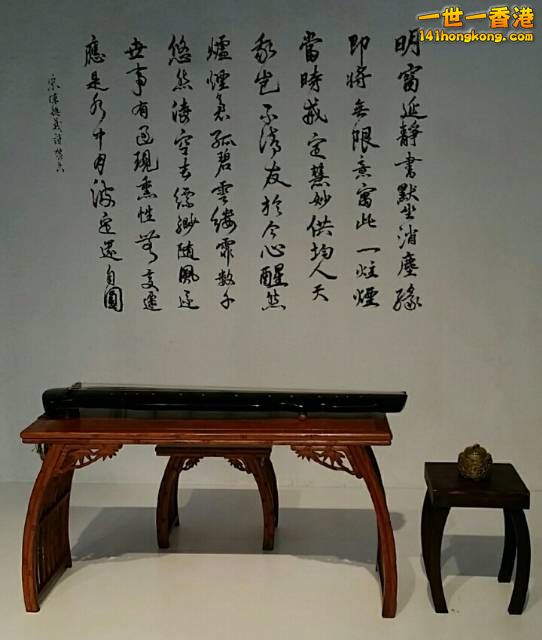 一世一香港
141hongkong.com
明窗延靜書默坐消塵緣
即將無限意寓此一炷煙
當時戒定慧妙供均人天
我豈不清友於今心醒然
爐煙裊孤碧雲縷霏數千
悠然凌空去縹緲隨風還
世事有過現熏性無變遷
應是水中月波定還自圓
宋陳與義詩焚香